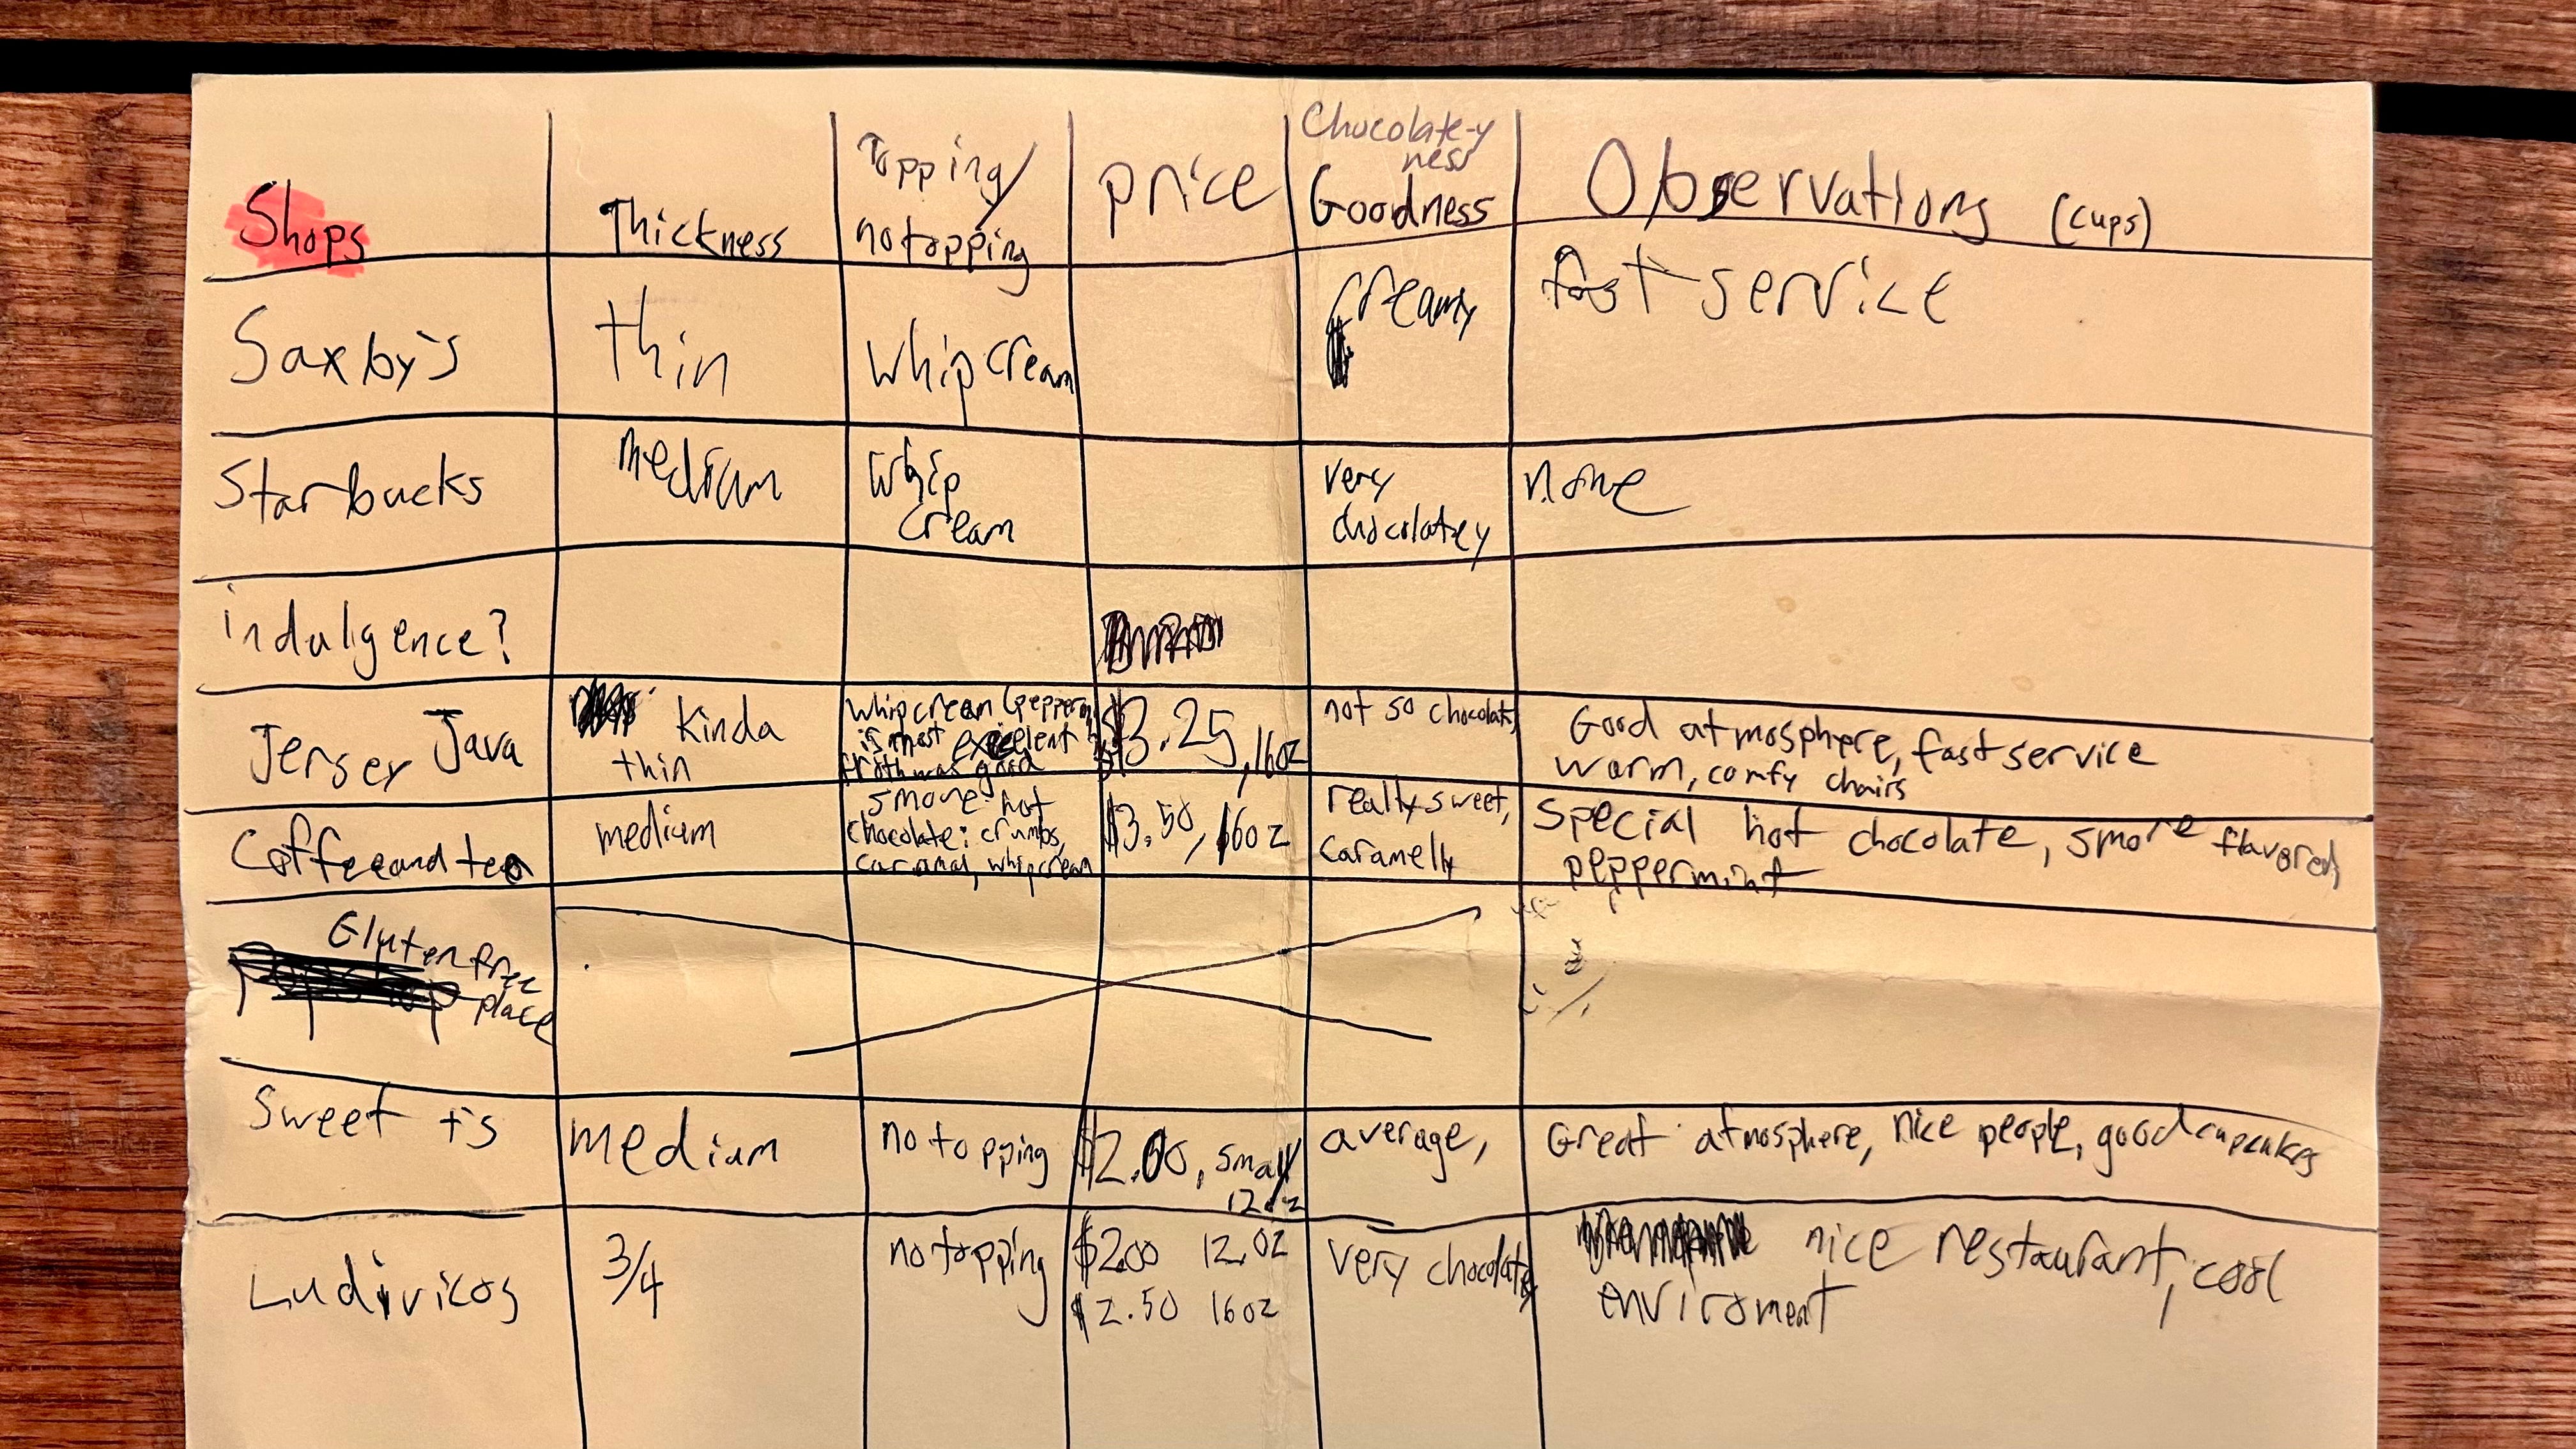 Shops
Thickness
Topping/
no topping
price
Chocolate-y
ness
Goodness
Observations (cups)
Saxby's
thin
whip cream
creamy
fast service
Starbucks
medium
whip
cream
very
chocolatey
none
indulgence?
Jerser Java
Kinda
thin
whip cream (pepperm
is most excelent
froth was good
$3.25, 16oz
not so chocolaty
Good atmosphere, fast service
warm, comfy chairs
Coffee and tea
medium
smore hot
chocolate: crumbs,
caramal, whip cream
$3.50, 16oz
really sweet,
caramelly
special hot chocolate, smore flavored,
peppermint
Gluten free
place
Sweet t's
medium
no topping
$2.00, small
12oz
average,
Great atmosphere, nice people, good cupcakes
Ludivicos
3/4
no topping
$2.00 12.oz
$2.50 16oz
very chocolaty
nice restaurant, cool
enviroment